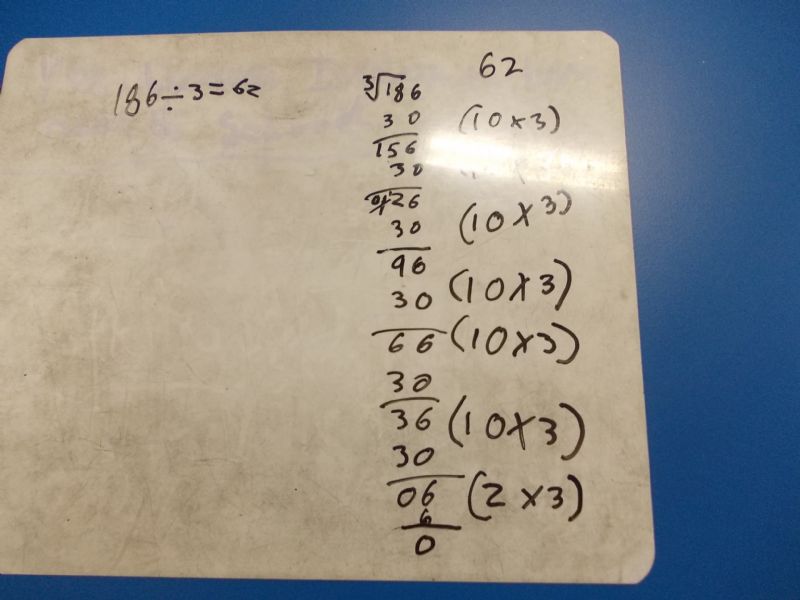 186÷3=62
62
3√186
30 (10x3)
156
30
126
30 (10x3)
96
30 (10x3)
66 (10x3)
30
36 (10x3)
30
06 (2x3)
6
0